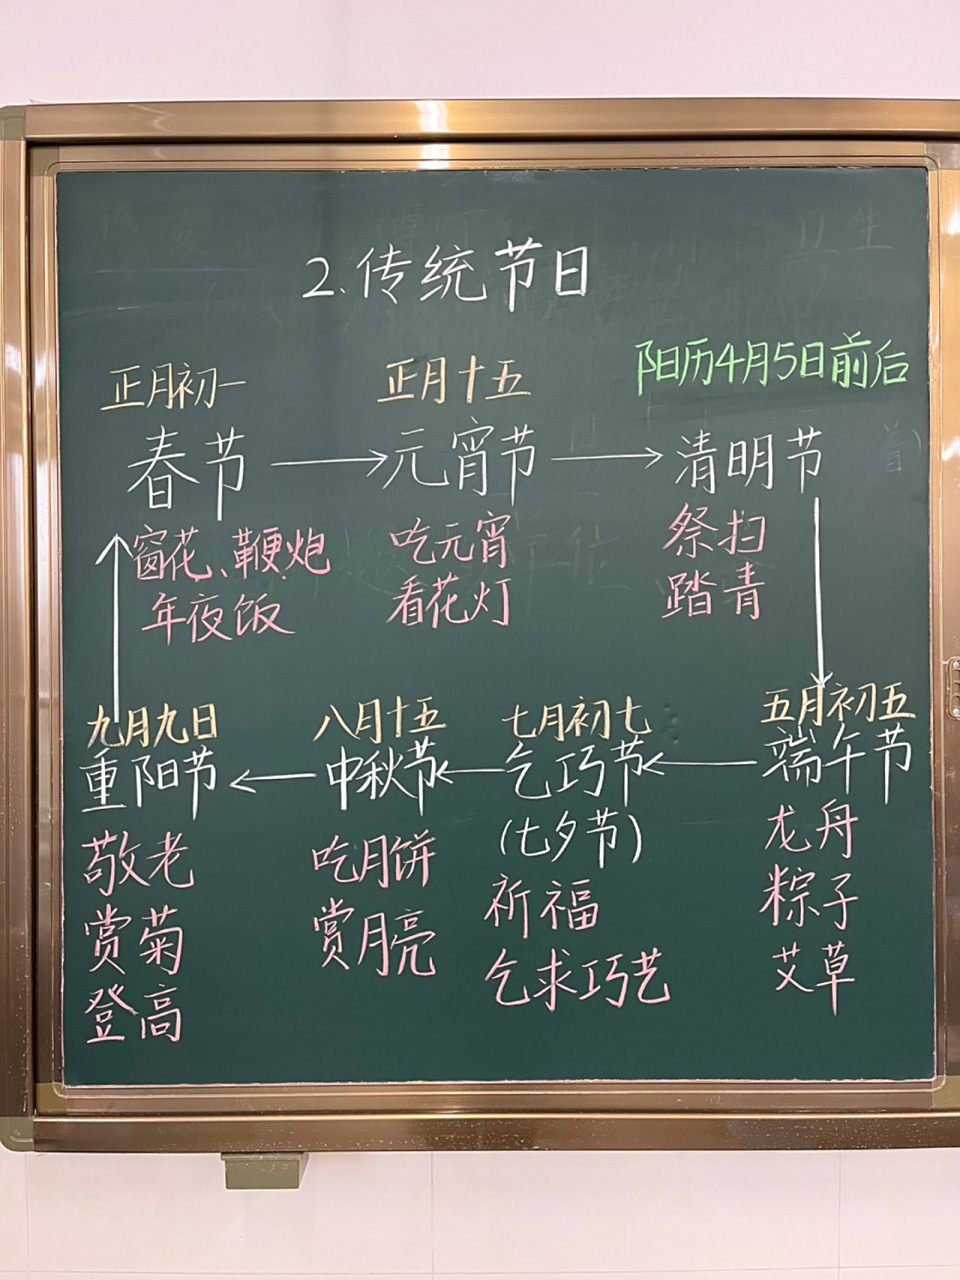 2.传统节日
正月初一
春节
窗花、鞭炮
年夜饭
正月十五
元宵节
吃元宵
看花灯
阳历4月5日前后
清明节
祭扫
踏青
五月初五
端午节
龙舟
粽子
艾草
七月初七
乞巧节
(七夕节)
祈福
乞求巧艺
八月十五
中秋节
吃月饼
赏月亮
九月九日
重阳节
敬老
赏菊
登高